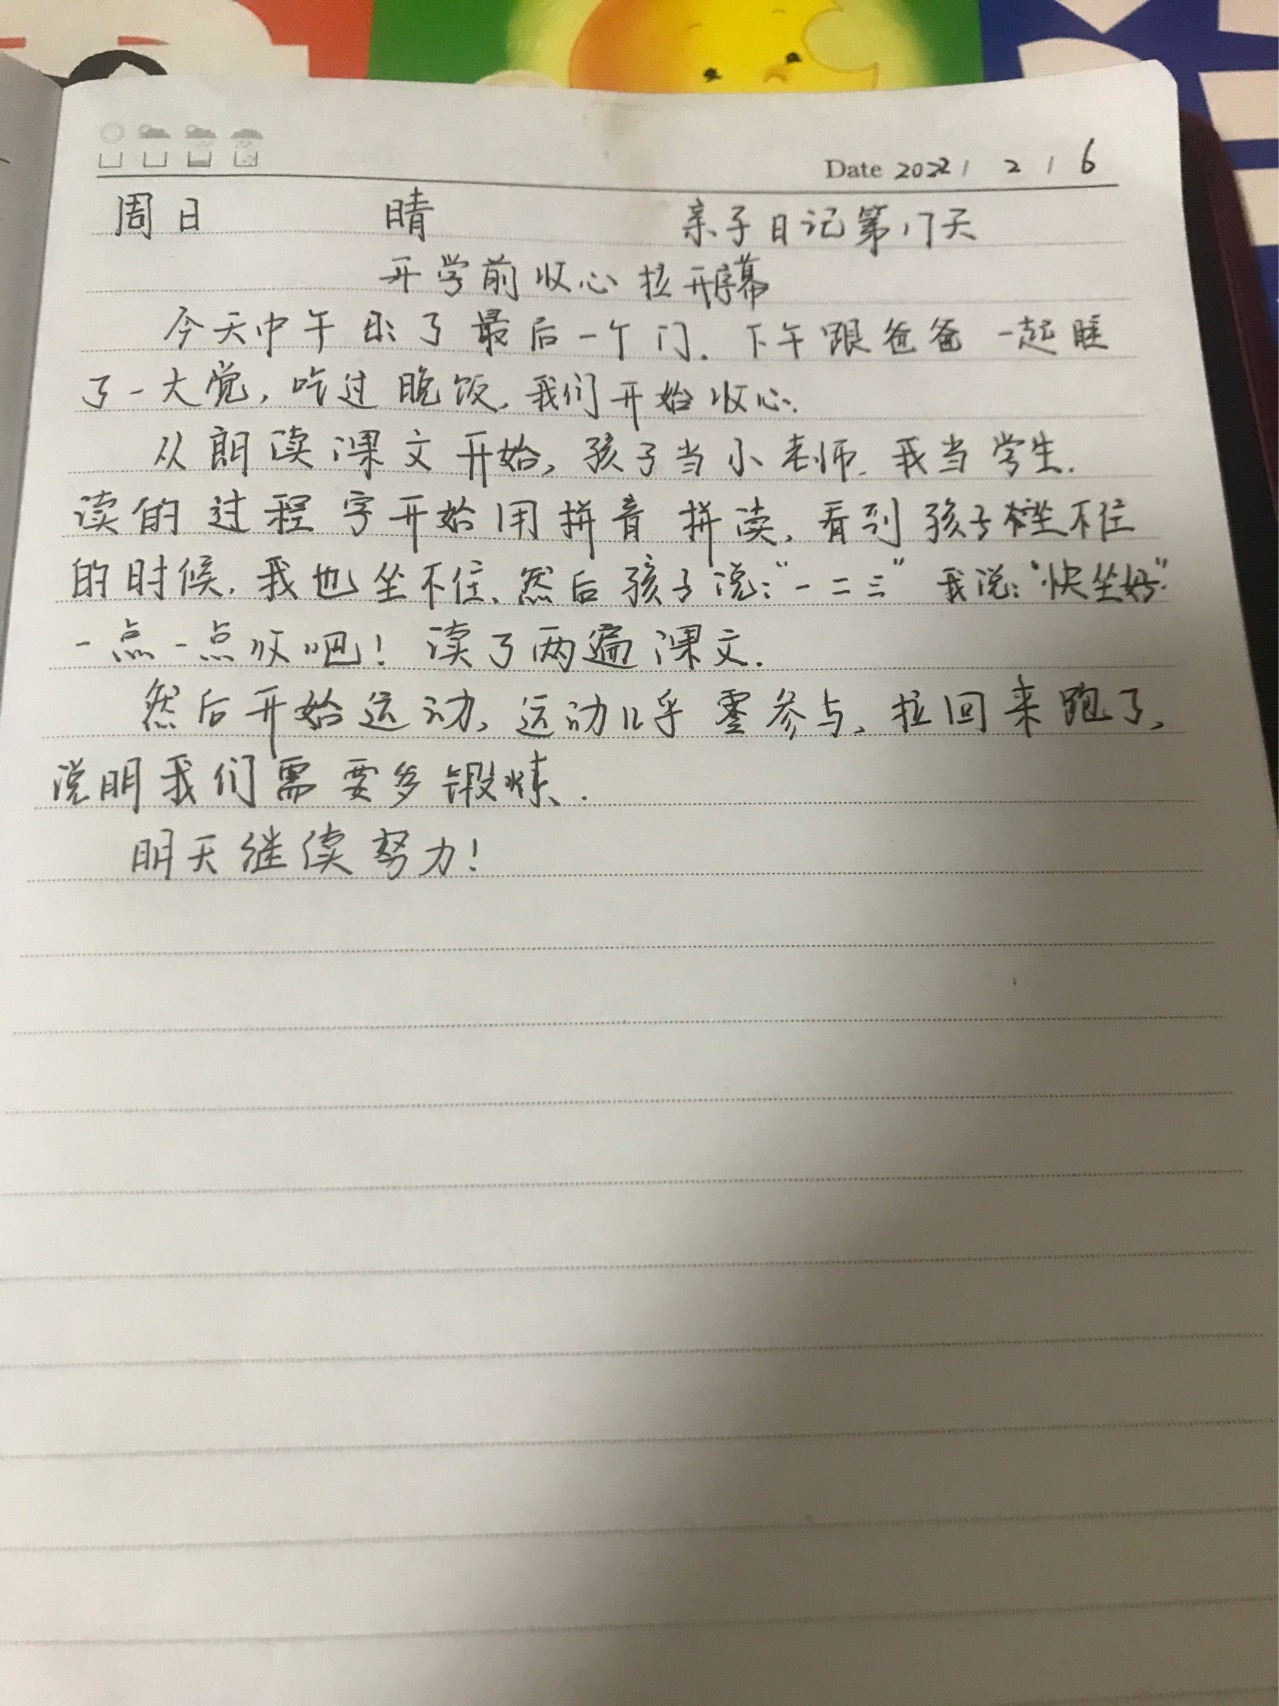 Date 2022 / 2 / 6
周日 晴 亲子日记第17天
开学前收心拉开序幕
今天中午 了最后一个门.下午跟爸爸一起睡
了一大觉,吃过晚饭.我们开始收心.
从朗读课文开始,孩子当小老师.我当学生.
读的过程字开始用拼音拼读,看到孩子坐不住
的时候.我也坐不住.然后孩子说:“一二三”我说:“快坐好”.
一点一点收吧!读了两遍课文.
然后开始运动,运动几乎零参与,拉回来跑了,
说明我们需要多锻炼.
明天继续努力!